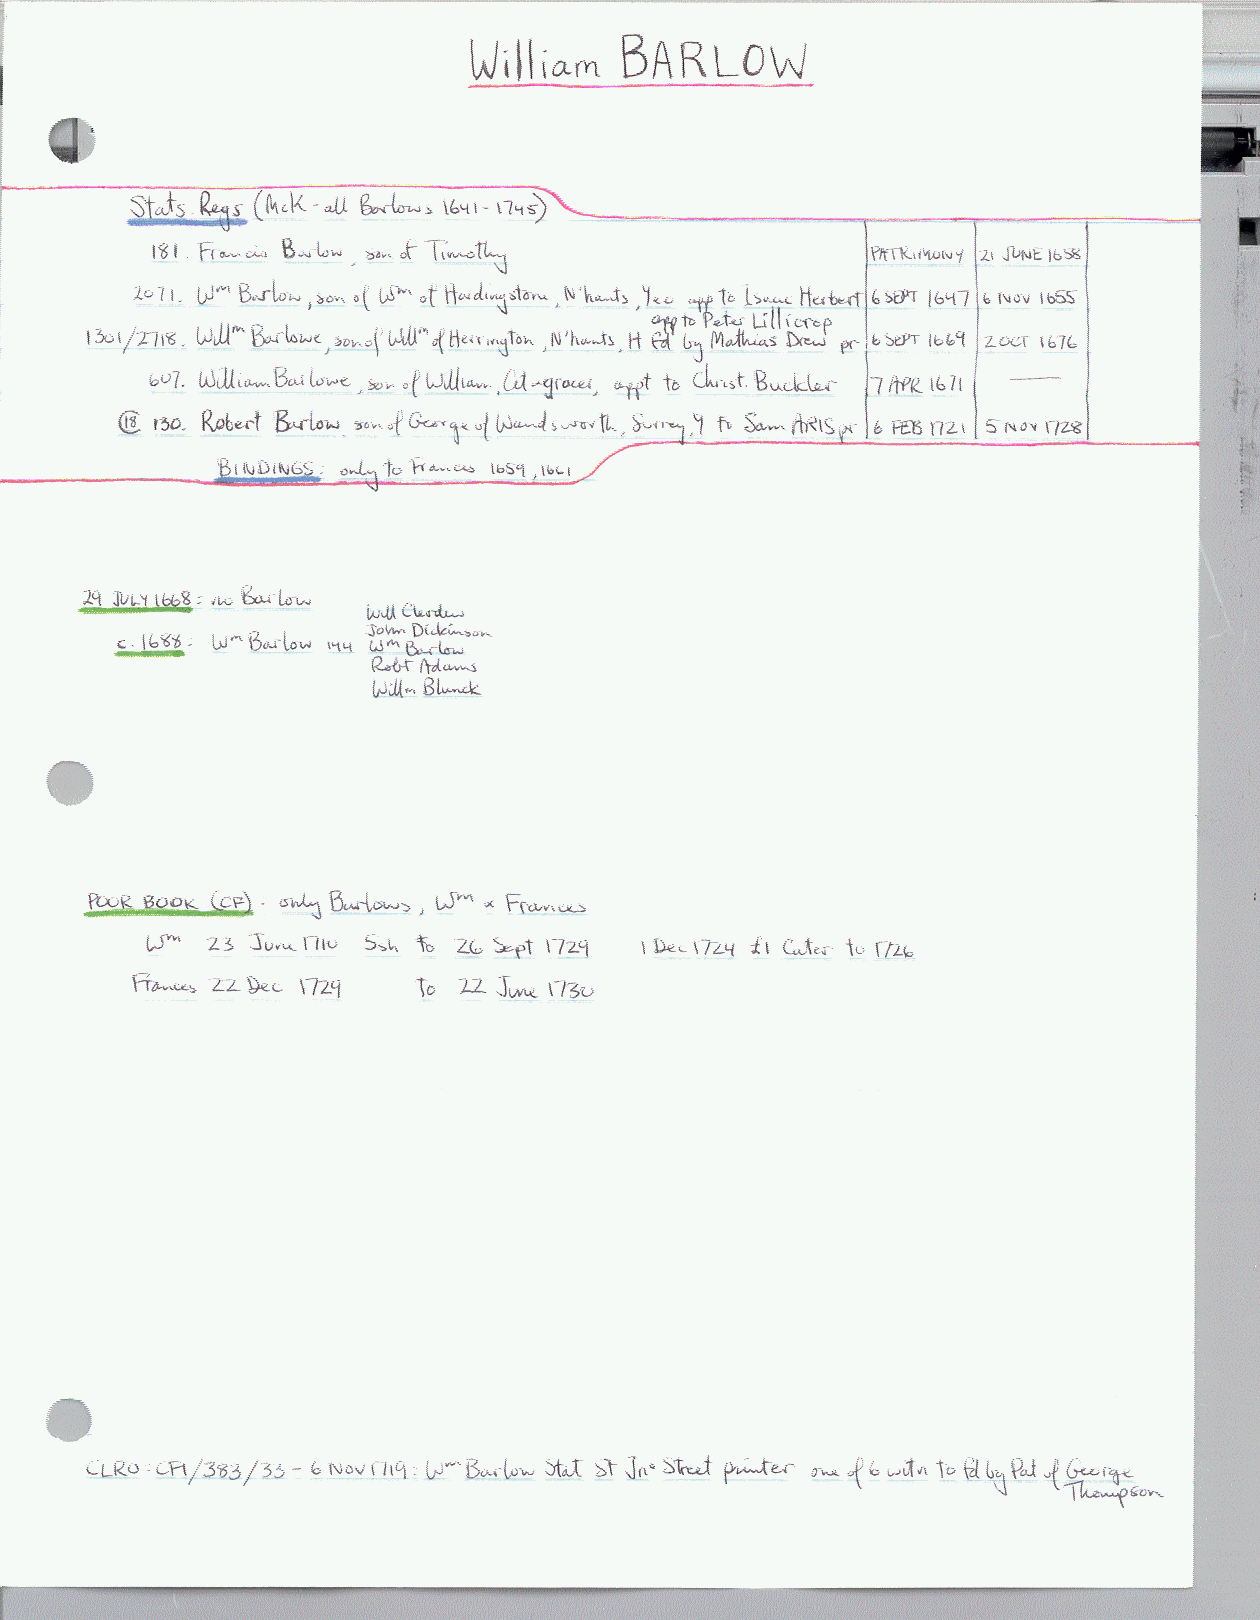 William BARLOW
Stats. Regs (McK - all Barlows 1641-1745)
181. Francis Barlow, son of Timothy PATRIMONY 21 JUNE 1658
2071. Wm Barlow, son of Wm of Hardingstone, N'hants, Yeo app to Isaac Herbert 6 SEPT 1647 6 NOV 1655
app to Peter Lillicrop
1301/2718. Willm Barlowe, son of Willm of Herrington, N'hants, H Fd by Mathias Drew pr 6 SEPT 1669 2 OCT 1676
607. William Barlowe, son of William, Cit-grocer, appt to Christ. Buckler 7 APR 1671 —
(18) 130. Robert Barlow son of George of Wandsworth, Surrey, Y to Sam ARIS pr 6 FEB 1721 5 NOV 1728
BINDINGS: only to Frances 1659, 1661
29 JULY 1668: no Barlow
c. 1688: Wm Barlow 144
Will Clerdew
John Dickinson
Wm Barlow
Robt Adams
Willm Blunck
POOR BOOK (CF) - only Barlows, Wm & Frances
Wm 23 June 1710 5sh to 26 Sept 1729 1 Dec 1724 £1 Cater to 1726
Frances 22 Dec 1729 to 22 June 1730
CLRO: CF1/383/33 - 6 NOV 1719: Wm Barlow Stat St Jno Street printer one of 6 witn to fd by Pat of George
Thompson